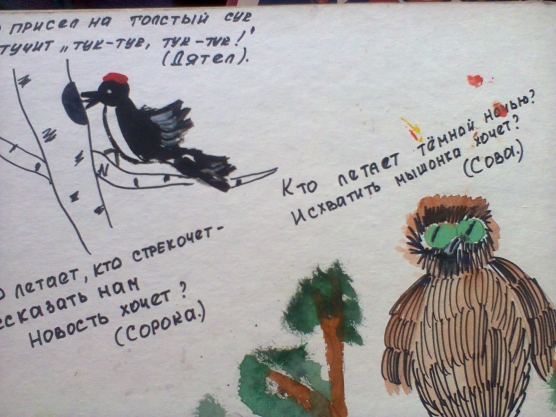 ПРИСЕЛ НА ТОЛСТЫЙ СУК
СТУЧИТ „ТУК-ТУК, ТУК-ТУК!"
(ДЯТЕЛ).
КТО ЛЕТАЕТ ТЁМНОЙ НОЧЬЮ?
ИСХВАТИТЬ МЫШОНКА ХОЧЕТ?
(СОВА.)
ЛЕТАЕТ, КТО СТРЕКОЧЕТ-
ССКАЗАТЬ НАМ
НОВОСТЬ ХОЧЕТ?
(СОРОКА.)